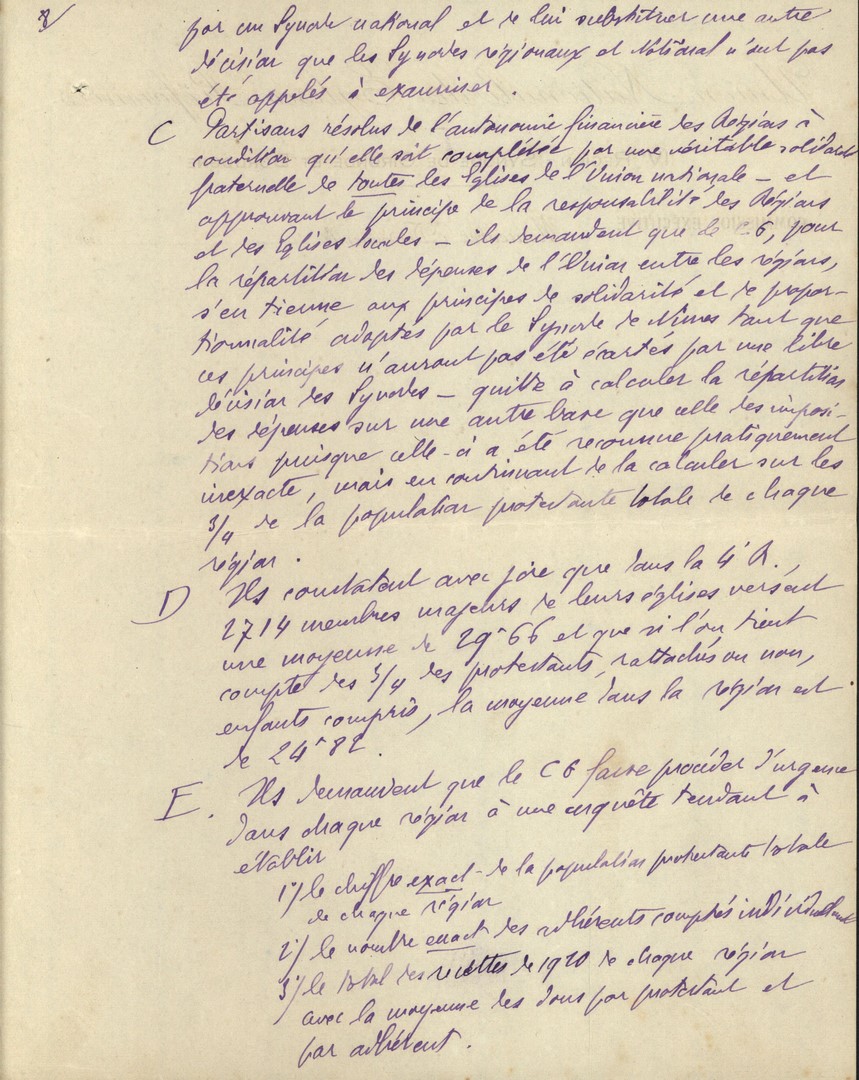 par un Synode national et de lui substituer une autre
décision que les Synodes régionaux et National n'ont pas
été appelés à examiner.
C Partisans résolus de l'autonomie financière des Régions à
condition qu'elle soit complétée par une véritable solidarité
fraternelle de toutes les Eglises de l'Union nationale – et
approuvant le principe de la responsabilité des Régions
et des Eglises locales – ils demandent que le C G, pour
la répartition des dépenses de l'Union entre les régions,
s'en tienne aux principes de solidarité et de propor-
tionnalité adoptés par le Synode de Nîmes tant que
ces principes n'auront pas été écartés par une libre
décision des Synodes – quitte à calculer la répartition
des dépenses sur une autre base que celle des imposi-
tions puisque celle-ci a été reconnue pratiquement
inexacte, mais en continuant de la calculer sur les
3/4 de la population protestante totale de chaque
région.
D Ils constatent avec joie que dans la 4e R.,
2714 membres majeurs de leurs églises versent
une moyenne de 29f 66 et que si l'on tient
compte des 3/4 des protestants, rattachés ou non,
enfants compris, la moyenne dans la région est
de 24f 82.
E. Ils demandent que le C G fasse procéder d'urgence
dans chaque région à une enquête tendant à
établir
1°/ le chiffre exact de la population protestante totale
de chaque région
2°/ le nombre exact des adhérents comptés individuellement
3°/ le total des recettes de 1920 de chaque région
avec la moyenne des dons par protestant et
par adhérent.